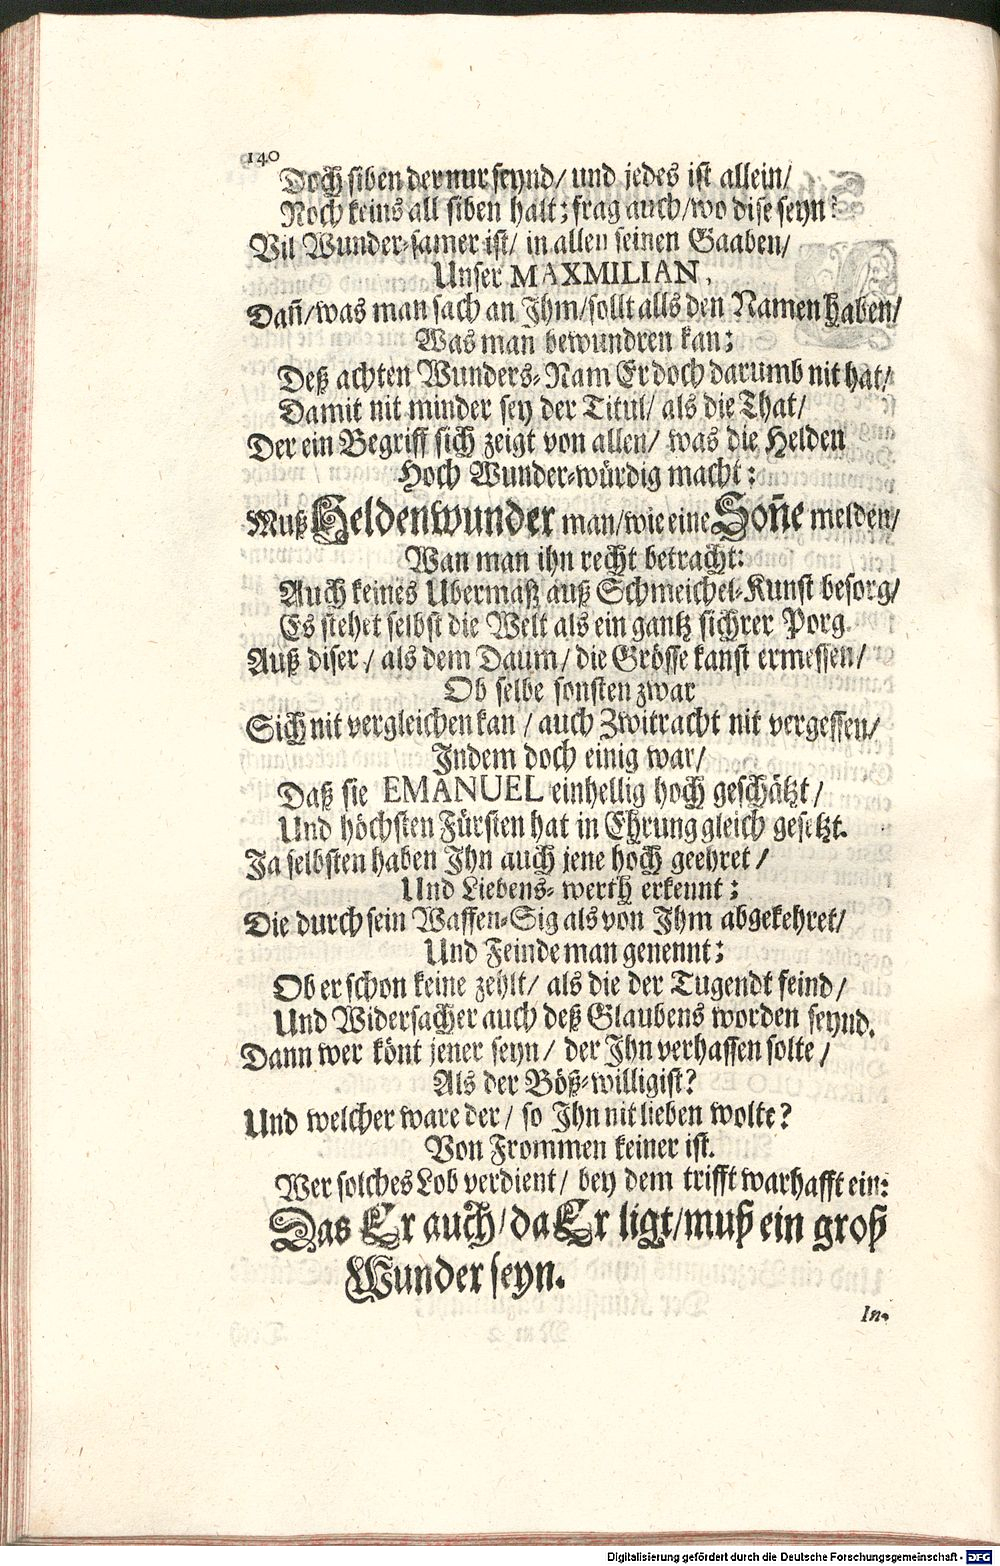 140
Doch siben der nur seynd/ und jedes ist allein/
Noch keins all siben halt; frag auch/ wo dise seyn?
Vil Wunder-samer ist/ in allen seinen Gaaben/
Unser MAXMILIAN,
Dañ/ was man sach an Ihm/ sollt alls den Namen haben/
Was man bewundren kan;
Deß achten Wunders-Nam Er doch darumb nit hat/
Damit nit minder sey der Titul/ als die That/
Der ein Begriff sich zeigt von allen/ was die Helden
Hoch Wunder-würdig macht:
Muß Heldenwunder man/ wie eine Soñe melden/
Wan man ihn recht betracht:
Auch keines Ubermaß auß Schmeichel-Kunst besorg/
Es stehet selbst die Welt als ein gantz sichrer Porg.
Auß diser/ als dem Daum/ die Grösse kanst ermessen/
Ob selbe sonsten zwar
Sich nit vergleichen kan/ auch Zwitracht nit vergessen/
Indem doch einig war/
Daß sie EMANUEL einhellig hoch geschätzt/
Und höchsten Fürsten hat in Ehrung gleich gesetzt.
Ja selbsten haben Ihn auch jene hoch geehret/
Und Liebens-werth erkennt;
Die durch sein Waffen-Sig als von Ihm abgekehret/
Und Feinde man genennt;
Ob er schon keine zehlt/ als die der Tugendt feind/
Und Widersacher auch deß Glaubens worden seynd.
Dann wer könt jener seyn/ der Ihn verhassen solte/
Als der Böß-willigist?
Und welcher ware der/ so Ihn nit lieben wolte?
Von Frommen keiner ist.
Wer solches Lob verdient/ bey dem trifft warhafft ein:
Das Er auch/ da Er ligt/ muß ein groß
Wunder seyn.
In-
Digitalisierung gefördert durch die Deutsche Forschungsgemeinschaft - DFG